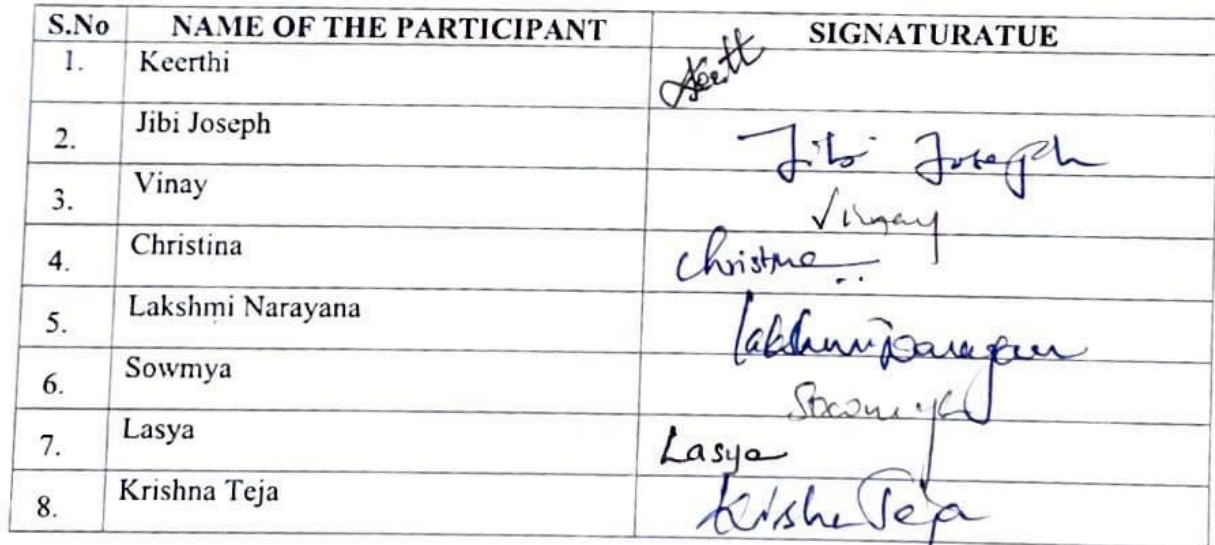 S.No NAME OF THE PARTICIPANT SIGNATURATUE
1. Keerthi Keertt
2. Jibi Joseph Jibi Joseph
3. Vinay Vinay
4. Christina Christina
5. Lakshmi Narayana
6. Sowmya Sowmya
7. Lasya Lasya
8. Krishna Teja Krishna Teja